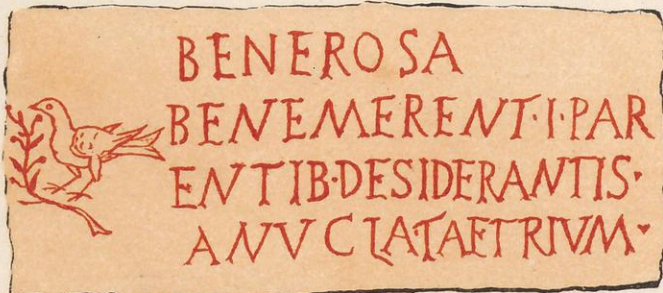 BENEROSA
BENEMERENT·I·PAR
ENTIB·DESIDERANTIS·
ANVCLATAETRIVM